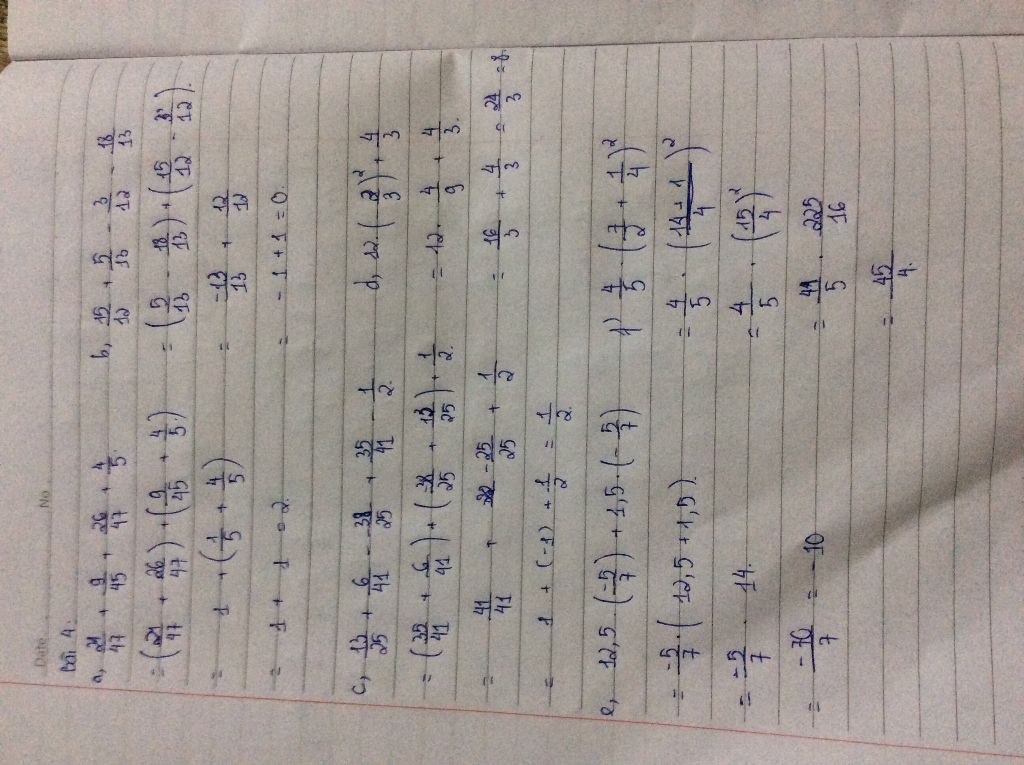 Date No
Bài 4:
a, 21/47 + 9/45 + 26/47 + 4/5.
= (21/47 + 26/47) + (9/45 + 4/5)
= 1 + (1/5 + 4/5)
= 1 + 1 = 2.
b, 15/12 + 5/13 - 3/12 - 18/13
= (5/13 - 18/13) + (15/12 - 3/12).
= -13/13 + 12/12
= -1 + 1 = 0
c, 13/25 + 6/41 - 38/25 + 35/41 - 1/2.
= (35/41 + 6/41) + (38/25 + 13/25) + 1/2.
= 41/41 + -25/25 + 1/2
= 1 + (-1) + 1/2 = 1/2.
d, 12.(2/3)² + 4/3
= 12. 4/9 + 4/3.
= 16/3 + 4/3 = 24/3 = 8.
e, 12,5 (-5/7) + 1,5.(-5/7)
= -5/7.(12,5 + 1,5)
= -5/7 . 14.
= -70/7 = -10
4/5.(7/2 + 1/4)²
= 4/5 . (14-1/4)²
= 4/5 . (15/4)²
= 225/16
= 45/4.